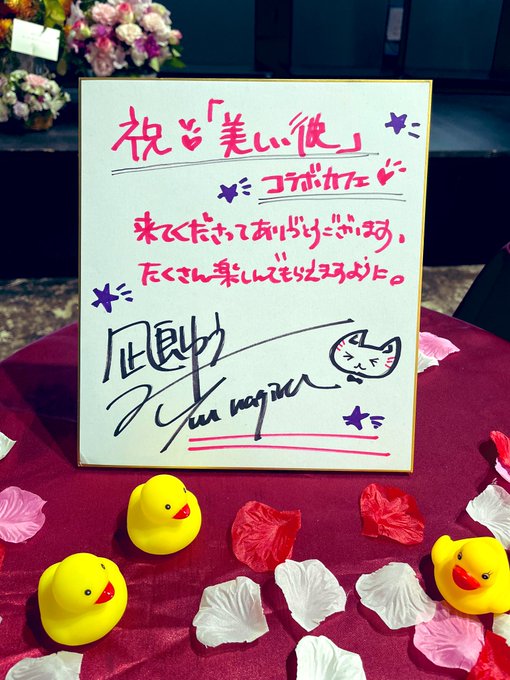 祝「美しい彼」
コラボカフェ
来てくださってありがとうございます。
たくさん楽しんでもらえますように。
凪良ゆう
Yuu nagira